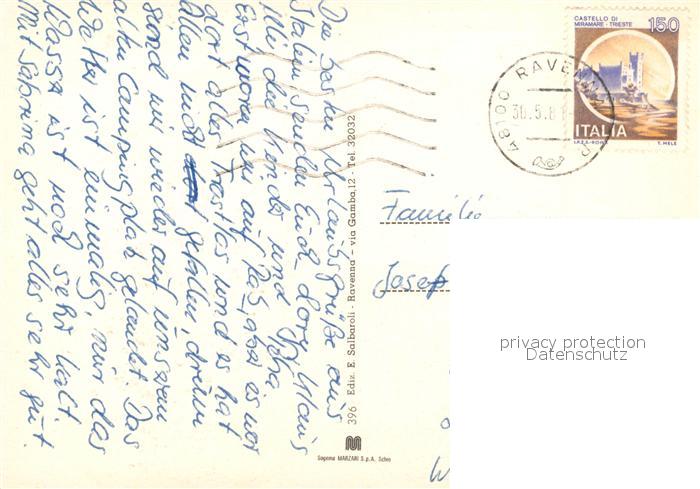 Die besten Urlaubsgrüße aus
Italien senden Euch Lory, Klaus
Mi die Kinder und Opa.
Erst waren wir auf Pag, aber es war
dort alles Trostlos und es hat
Allen nicht gefallen, drum
sind wir wieder auf unseren
alten Campingplatz gelandet. Das
Wetter ist einmalig, nur das
Wasser ist noch sehr kalt.
Mit Sabrina geht alles sehr gut.
396 Ediz. E. Salbaroli - Ravenna - via Gamba, 12 - Tel. 32032
M
Sagoma MARZARI S.p.A. Schio
48100 RAVENNA
30.5.8
CASTELLO DI
MIRAMARE - TRIESTE
150
ITALIA
I.P.Z.S. - ROMA T. MELE
Familie
Josef
W
privacy protection
Datenschutz